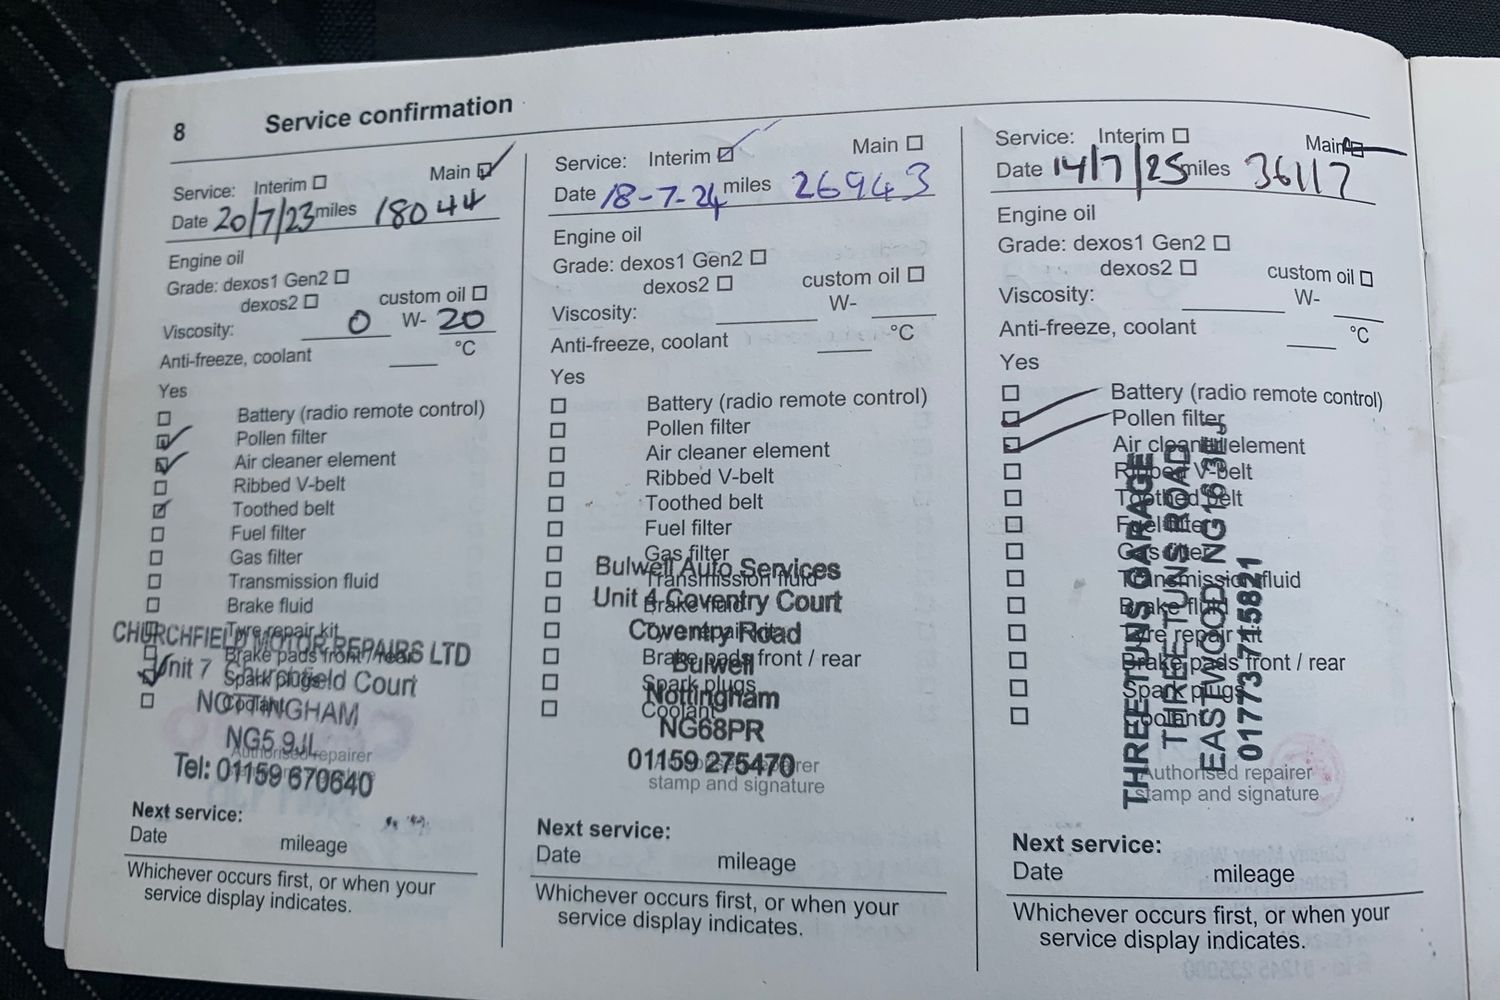 8 Service confirmation
Service: Interim ☐ Main ☑
Date 20/7/23 miles 18044
Engine oil
Grade: dexos1 Gen2 ☐
dexos2 ☐ custom oil ☐
Viscosity: 0 W- 20
Anti-freeze, coolant ____ °C
Yes
☐ Battery (radio remote control)
☑ Pollen filter
☑ Air cleaner element
☐ Ribbed V-belt
☑ Toothed belt
☐ Fuel filter
☐ Gas filter
☐ Transmission fluid
☐ Brake fluid
☐ Tyre repair kit
CHURCHFIELD MOTOR REPAIRS LTD
☐ Brake pads front / rear
Unit 7 Churchfield Court
☑ Spark plugs
☐ Coolant
NOTTINGHAM
NG5 9JL
Authorised repairer
Tel: 01159 670640
Next service:
Date mileage
Whichever occurs first, or when your
service display indicates.
Service: Interim ☑ Main ☐
Date 18-7-24 miles 26943
Engine oil
Grade: dexos1 Gen2 ☐
dexos2 ☐ custom oil ☐
Viscosity: ____ W- ____
Anti-freeze, coolant ____ °C
Yes
☐ Battery (radio remote control)
☐ Pollen filter
☐ Air cleaner element
☐ Ribbed V-belt
☐ Toothed belt
☐ Fuel filter
☐ Gas filter
Bulwell Auto Services
☐ Transmission fluid
Unit 4 Coventry Court
☐ Brake fluid
☐ Tyre repair kit
Coventry Road
☐ Brake pads front / rear
Bulwell
☐ Spark plugs
Nottingham
☐ Coolant
NG68PR
01159 275470
Authorised repairer
stamp and signature
Next service:
Date mileage
Whichever occurs first, or when your
service display indicates.
Service: Interim ☐ Main ☑
Date 14/7/25 miles 36117
Engine oil
Grade: dexos1 Gen2 ☐
dexos2 ☐ custom oil ☐
Viscosity: ____ W- ____
Anti-freeze, coolant ____ °C
Yes
☐ Battery (radio remote control)
☑ Pollen filter
☑ Air cleaner element
☐ Ribbed V-belt
☐ Toothed belt
☐ Fuel filter
☐ Gas filter
☐ Transmission fluid
☐ Brake fluid
☐ Tyre repair kit
☐ Brake pads front / rear
☐ Spark plugs
☐ Coolant
THREE TUNS GARAGE
THREE TUNS ROAD
EASTWOOD NG16 3EJ
01773 715821
Authorised repairer
stamp and signature
Next service:
Date mileage
Whichever occurs first, or when your
service display indicates.